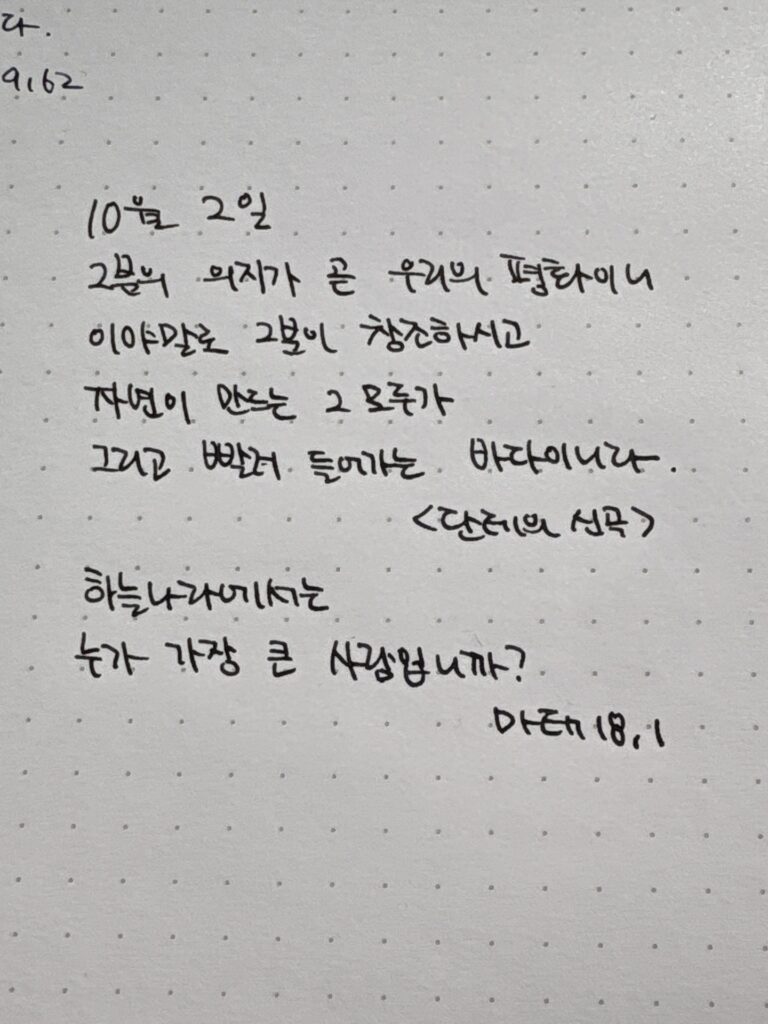 다.
9,62
10월 2일
그분의 의지가 곧 우리의 평화이니
이야말로 그분이 창조하시고
자연이 만드는 그 모두가
그리고 빨려 들어가는 바다이니라.
<단테의 신곡>
하늘나라에서는
누가 가장 큰 사람입니까?
마태 18,1